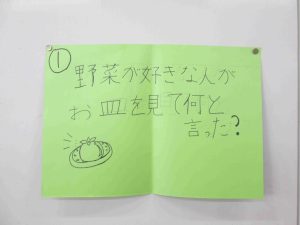 ①
野菜が好きな人が
お皿を見て何と
言った?